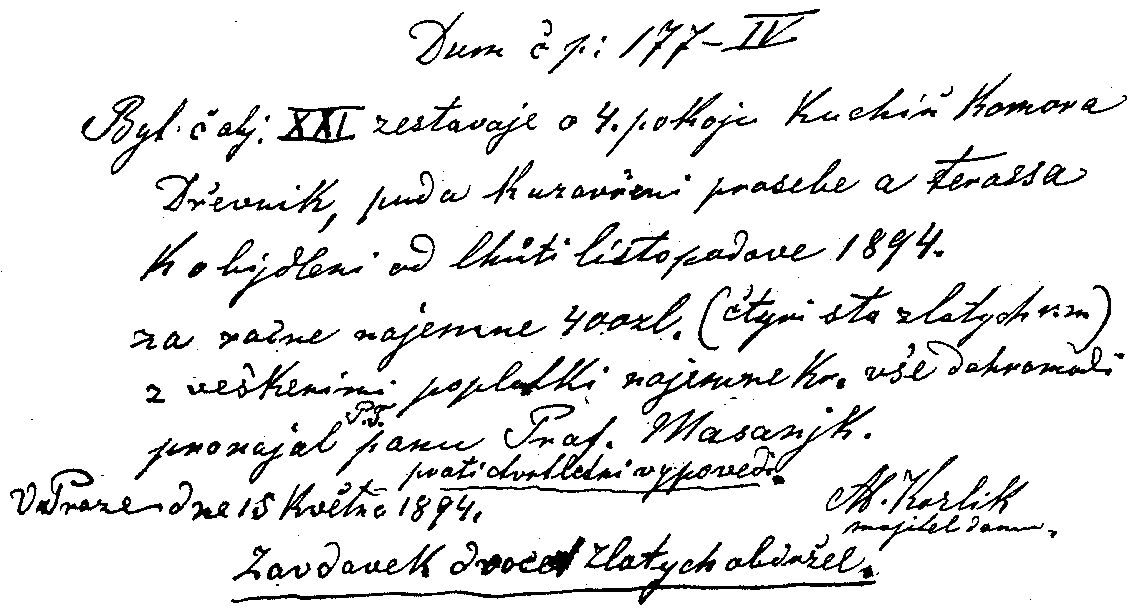 Dum čp: 177-IV
Byt. č alj. XXI zestavaje o 4. pokoju Kuchiň Komora
Dřevnik, puda k uzavřeni prosebe a terassa
K obijdleni od lhůti listopadove 1894.
za ročne najemne 400zl. (čtyri sta zlatych r.m)
z veškerimi poplatki najemne Kr. vše dohromadi
pronajal P.T. panu Prof. Masarijk.
proti čtvrtletni vypovědi.
V Praze dne 15 Května 1894.
Al. Korlik
majitel domu.
Zavdavek dvacet zlatych obdržel.